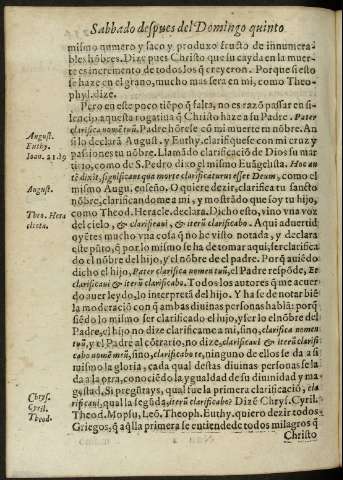 Sabbado despues del Domingo quinto
mismo numero y saco y produxo fruto de innumera
bles hōbres. Dize pues Christo que su cayda en la muer
te es incremento de todos los q̄ creyeron. Porque si esto
se haze en el grano, mucho mas sera en mi, como Theo
phyl. dize.
Pero en este poco tiēpo q̄ falta, no es razō passar en si-
lencio aquesta rogatiua q̄ Christo haze a su Padre. Pater
clarifica nomē tuū. Padre hōrese cō mi muerte tu nōbre. An
si lo declara August. y Euthy. clarifiquese con mi cruz y
passiones tu nōbre. Llamādo clarificaciō de Dios su mar
tirio, como de S. Pedro dixo el mismo Euāgelista. Hoc au
tē dixit, significans qua morte clarificaturus esset Deum, como el
mismo Augu. enseño. O quiere dezir, clarifica tu sancto
nōbre, clarificandome a mi, y mostrādo que soy tu hijo,
como Theod. Heracle. declara. Dicho esto, vino vna voz
del cielo, & clarificaui, & iterū clarificabo. Aqui aduertid
oyētes mucho vna cosa q̄ no he visto notada, y declara
este pūto, q̄ por lo mismo se ha de tomar aqui, ser clarifica
do el nōbre del hijo, y el nōbre de el padre. Porq̄ auiēdo
dicho el hijo, Pater clarifica nomen tuū, el Padre respōde, Et
clarificaui & iterū clarificabo. Todos los que me acuer
do auer leydo, lo interpretā del hijo. Y ha se de notar biē
la moderaciō con q̄ ambas diuinas personas hablā: porq̄
siēdo lo mismo ser clarificado el hijo, y ser lo el nōbre del
Padre, el hijo no dize clarificame a mi, sino, clarifica nomen
tuū, y el Padre al cōtrario, no dize, clarificaui & iterū clarifi
cabo nomē meū, sino, clarificabo te, ninguno de ellos se da a si
mismo la gloria, cada qual destas diuinas personas se la
da a la otra, conociēdo la ygualdad de su diuinidad y ma
gestad. Si pregūtays, qual fue la primera clarificaciō, cla
rificaui, qual la segūda, iterū clarificabo? Dizē Chrys. Cyril.
Theod. Mopsu, Leō. Theoph. Euthy. quiero dezir todos
Griegos, q̄ aq̄lla primera se entiende de todos milagros q̄
Christo
August.
Euthy.
Ioan. 21. 19
August.
Theo. Hera
cleota.
Chrys.
Cyril.
Theod.